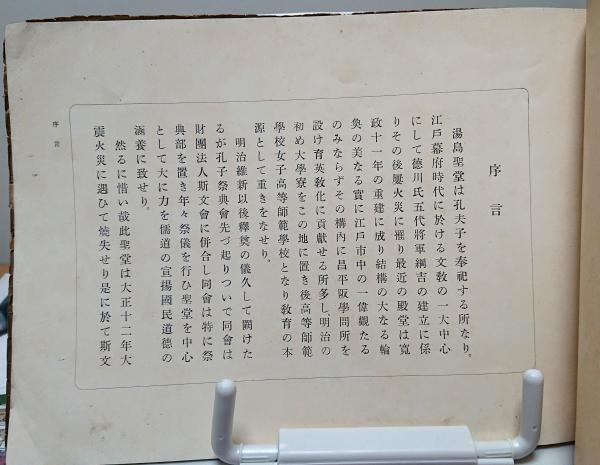 序言
湯島聖堂は孔夫子を奉祀する所なり。
江戸幕府時代に於ける文教の一大中心
にして德川氏五代將軍綱吉の建立に係
りその後屢火災に罹り最近の殿堂は寬
政十一年の重建に成り結構の大なる輪
奐の美なる實に江戸市中の一偉觀たる
のみならずその構內に昌平阪學問所を
設け育英敎化に貢獻せる所多し、明治の
初め大學寮をこの地に置き後高等師範
學校女子高等師範學校となり敎育の本
源として重きをなせり。
明治維新以後釋奠の儀久して闕けた
るが孔子祭典會先づ起りついで同會は
財團法人斯文會に併合し同會は特に祭
典部を置き年々祭儀を行ひ聖堂を中心
として大に力を儒道の宣揚國民道德の
涵養に致せり。
然るに惜い哉此聖堂は大正十二年大
震火災に遇ひて燒失せり是に於て斯文
序言